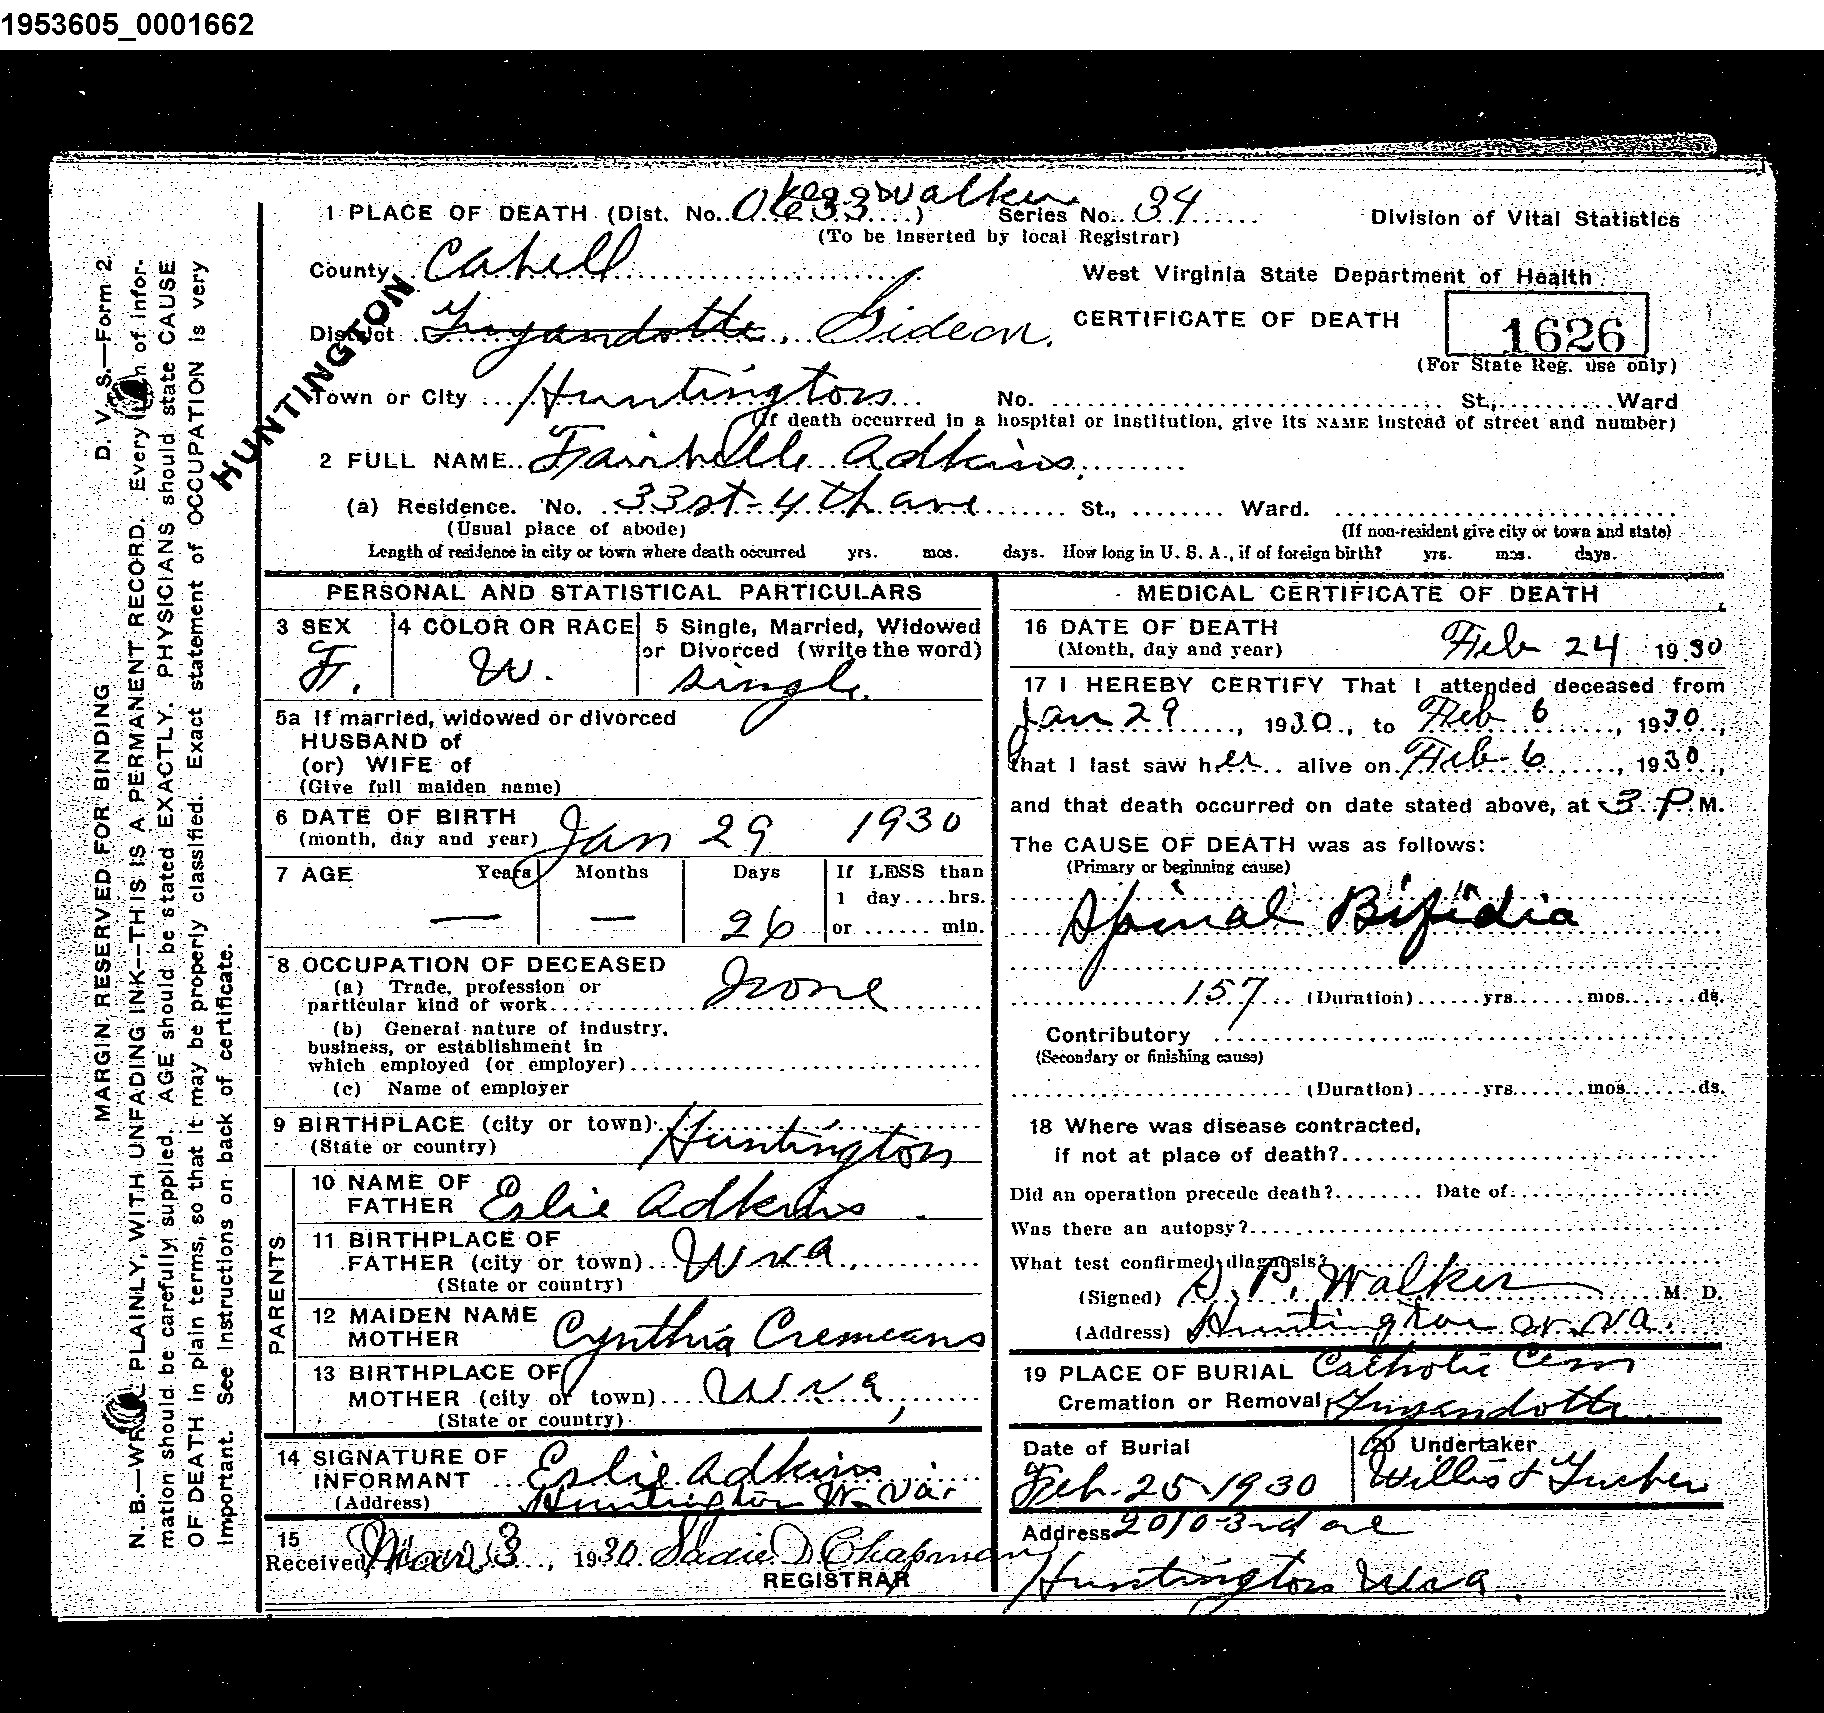 1953605_0001662
Walker
1 PLACE OF DEATH (Dist. No. 0633 ) Series No. 34 Division of Vital Statistics
(To be inserted by local Registrar)
County Cabell West Virginia State Department of Health
HUNTINGTON
District Guyandotte, Gideon. CERTIFICATE OF DEATH 1626
(For State Reg. use only)
Town or City Huntington No. St., Ward
(If death occurred in a hospital or institution, give its NAME instead of street and number)
2 FULL NAME Fairbelle Adkins.
(a) Residence. No. 33st-4th ave St., Ward.
(Usual place of abode) (If non-resident give city or town and state)
Length of residence in city or town where death occurred yrs. mos. days. How long in U. S. A., if of foreign birth? yrs. mos. days.
PERSONAL AND STATISTICAL PARTICULARS
3 SEX 4 COLOR OR RACE 5 Single, Married, Widowed
or Divorced (write the word)
F. W. Single.
5a If married, widowed or divorced
HUSBAND of
(or) WIFE of
(Give full maiden name)
6 DATE OF BIRTH
(month, day and year) Jan 29 1930
7 AGE Years Months Days If LESS than
1 day....hrs.
— — 26 or ...... min.
8 OCCUPATION OF DECEASED
(a) Trade, profession or
particular kind of work None
(b) General nature of industry,
business, or establishment in
which employed (or employer)
(c) Name of employer
9 BIRTHPLACE (city or town)
(State or country) Huntington
PARENTS
10 NAME OF
FATHER Eslie Adkins
11 BIRTHPLACE OF
FATHER (city or town) W va
(State or country)
12 MAIDEN NAME
MOTHER Cynthia Cremeans
13 BIRTHPLACE OF
MOTHER (city or town) W va,
(State or country)
14 SIGNATURE OF
INFORMANT Eslie Adkins
(Address) Huntington W. Va.
15
Received Mar 3, 1930 Sadie D Chapman
REGISTRAR
MEDICAL CERTIFICATE OF DEATH
16 DATE OF DEATH
(Month, day and year) Feb 24 1930
17 I HEREBY CERTIFY That I attended deceased from
Jan 29, 1930, to Feb 6, 1930,
that I last saw her alive on Feb 6, 1930,
and that death occurred on date stated above, at 3 P.M.
The CAUSE OF DEATH was as follows:
(Primary or beginning cause)
Spinal Bifidia
157 (Duration) yrs. mos. ds.
Contributory
(Secondary or finishing cause)
(Duration) yrs. mos. ds.
18 Where was disease contracted,
if not at place of death?
Did an operation precede death? Date of
Was there an autopsy?
What test confirmed diagnosis?
(Signed) S. P. Walker M. D.
(Address) Huntington W. Va.
19 PLACE OF BURIAL Catholic Cem
Cremation or Removal Guyandotte
Date of Burial 20 Undertaker
Feb. 25-1930 Willis &
Address 2010-3rd ave
Huntington W va.
D. V. S.—Form 2.
MARGIN RESERVED FOR BINDING
N. B.—WRITE PLAINLY, WITH UNFADING INK—THIS IS A PERMANENT RECORD. Every item of infor-
mation should be carefully supplied. AGE should be stated EXACTLY. PHYSICIANS should state CAUSE
OF DEATH in plain terms, so that it may be properly classified. Exact statement of OCCUPATION is very
important. See Instructions on back of certificate.